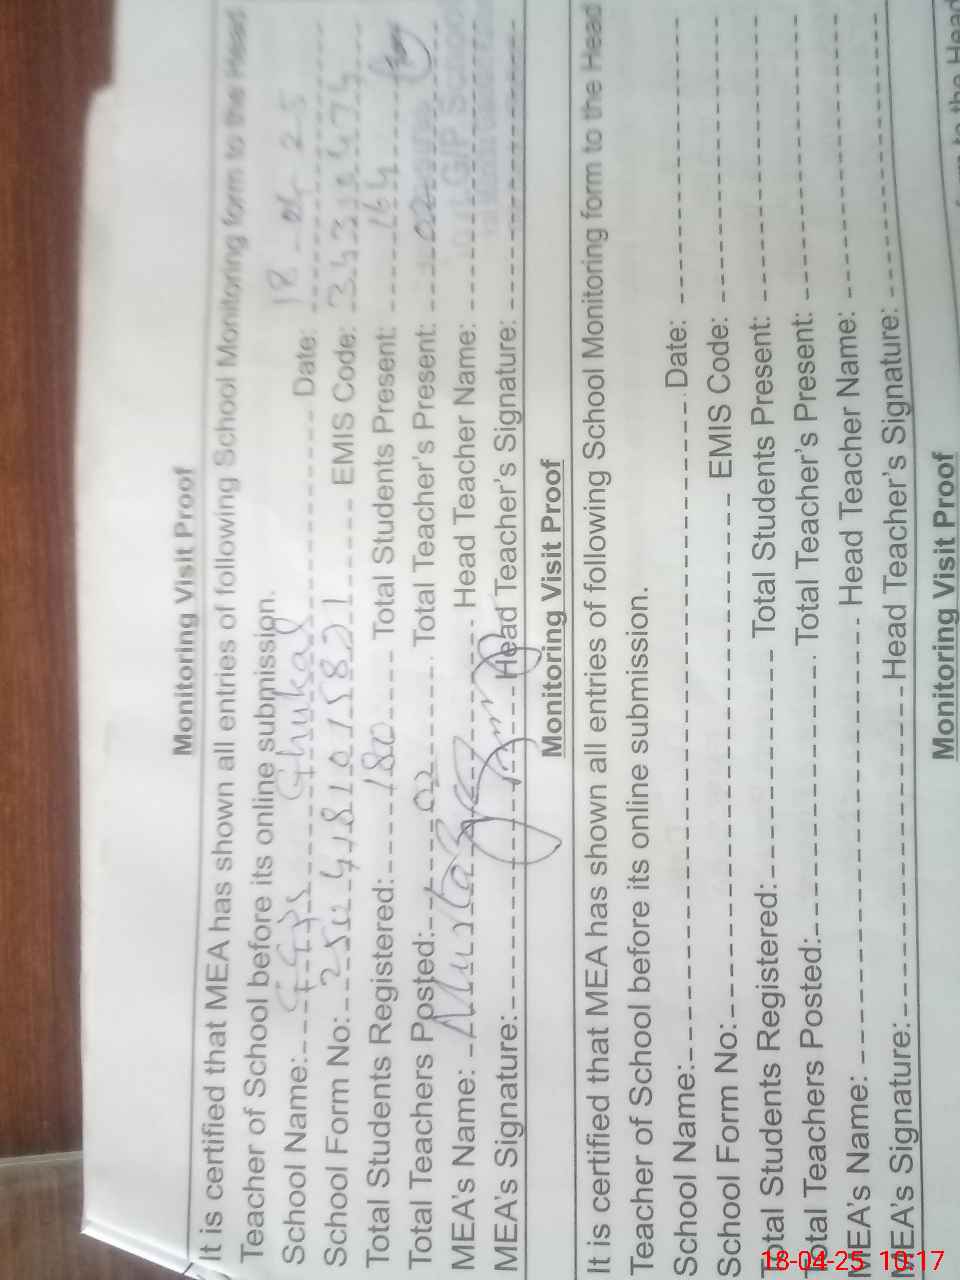 Monitoring Visit Proof
It is certified that MEA has shown all entries of following School Monitoring form to the Head
Teacher of School before its online submission.
School Name: GGPS Ghukal Date: 18-04-25
School Form No: 2504181015821 EMIS Code:
Total Students Registered: 180 Total Students Present: 164
Total Teachers Posted: 02 Total Teacher's Present: 02
MEA's Name: Head Teacher Name:
MEA's Signature: Head Teacher's Signature:
Monitoring Visit Proof
It is certified that MEA has shown all entries of following School Monitoring form to the Head
Teacher of School before its online submission.
School Name: Date:
School Form No: EMIS Code:
Total Students Registered: Total Students Present:
Total Teachers Posted: Total Teacher's Present:
MEA's Name: Head Teacher Name:
MEA's Signature: Head Teacher's Signature:
Monitoring Visit Proof
to the Head
18-04-25 10:17